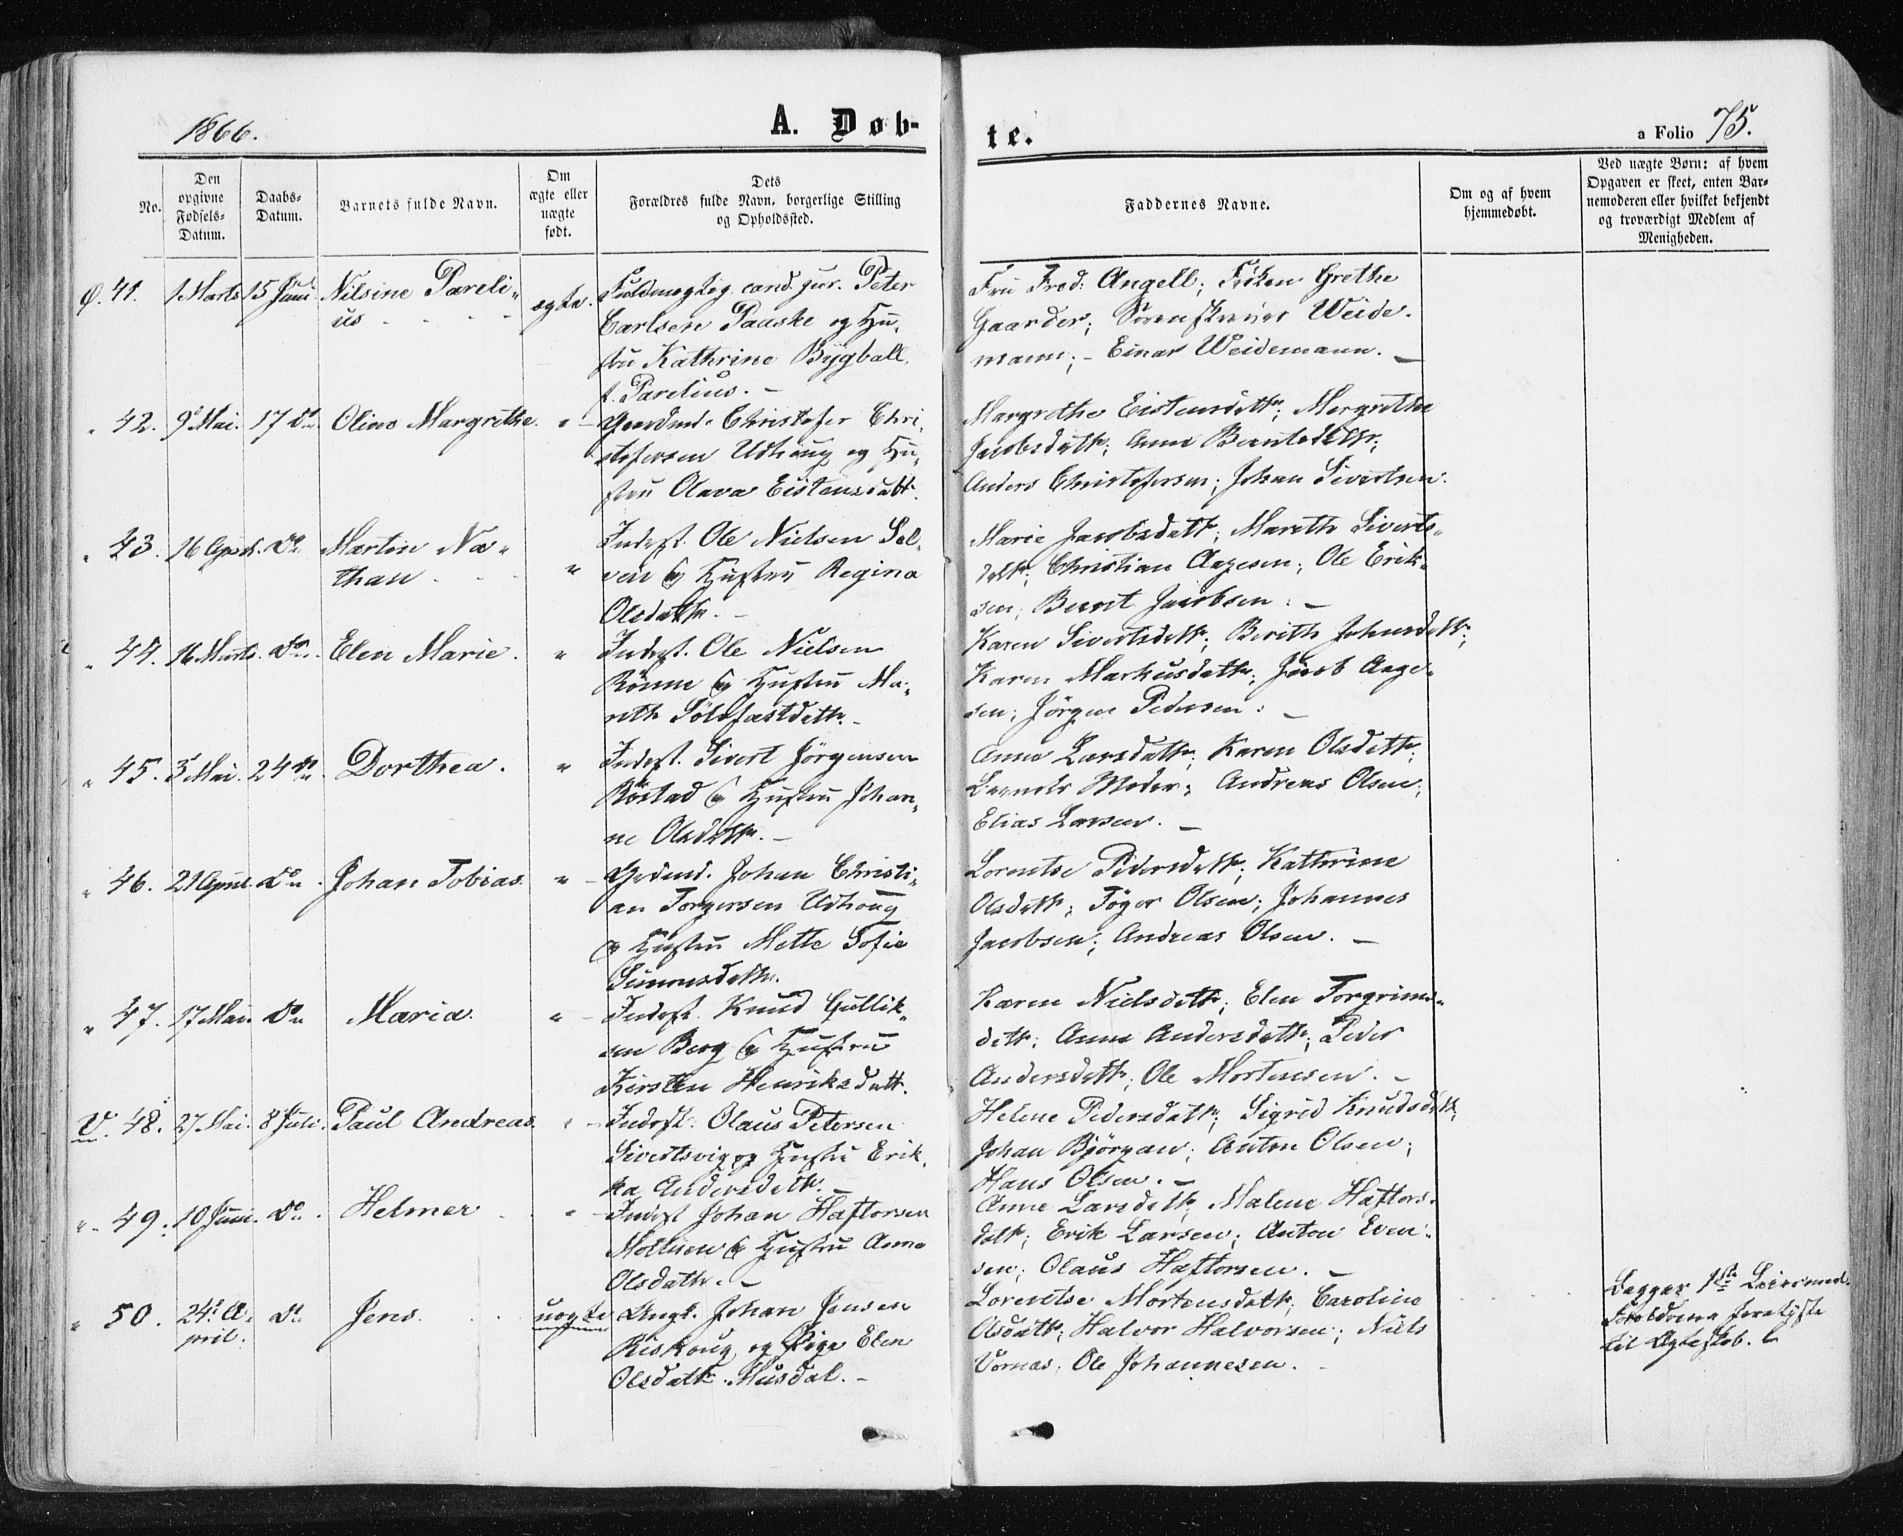 1866.
A. Døb-
te.
a Folio 75.
No.
Den opgivne Fødsels-Datum.
Daabs-Datum.
Barnets fulde Navn.
Om ægte eller uægte født.
Dets Forældres fulde Navn, borgerlige Stilling og Opholdssted.
Faddernes Navne.
Om og af hvem hjemmedøbt.
Ved uægte Børn: af hvem Opgaven er skeet, enten Barnemoderen eller hvilket bekjendt og troværdigt Medlem af Menigheden.
Ø. 41. 1 Marts 15 Juni Nilsine Pareli-
us
ægte.
Fuldmægtig cand. jur. Peter
Carlsen Paaske og Hu-
stru Kathrine Bygball
f. Parelius. -
Fru Fred. Angell; Frøken Grethe
Gaarder; Weide-
mann; - Einar Weidemann. -
" 42. 9 Mai. 17 do Oline Margrethe. "
Gaardmd. Christofer Chri-
stofersen Udhaug og Hu-
stru Olava Eistensdatt.
Margrethe Eistensdatt; Margrethe
Jacobsdatt; Anne Berntsdatt;
Anders Christofersen; Johan Sivertsen.
" 43. 16 April. do Martin Na-
than
"
Inderst. Ole Nielsen Sel-
ven og Hustru Regina
Olsdattr. -
Marie Jacobsdatt; Mareth Siverts-
datt; Christian Aagesen; Ole Erik-
sen; Bernt Jacobsen. -
" 44. 16 Marts. do. Elen Marie. "
Inderst. Ole Nielsen
Rönne og Hustru Ma-
reth Solofastdattr. -
Karen Sivertsdatt; Berith Johnsdatt;
Karen Markusdattr; Jacob Aage-
sen; Jörgen Pedersen. -
" 45. 3 Mai. 24 do Dorthea. "
Inderst. Sivert Jörgensen
Röstad og Hustru Johan-
ne Olsdattr. -
Anne Larsdattr; Karen Olsdattr;
Barnets Moder; Andreas Olsen;
Elias Larsen. -
" 46. 21 April. do. Johan Tobias. "
Grdmd. Johan Christi-
an Torgersen Udhoug
og Hustru Mette Sofie
Simonsdattr.
Lorentse Pedersdatt; Kathrine
Olsdatt; Töger Olsen; Johannes
Jacobsen; Andreas Olsen. -
" 47. 17 Mai. do Maria. "
Inderst. Knud Gullik-
sen Berg og Hustru
Kirsten Henriksdatt.
Karen Nielsdatt; Elen Torgrims-
datt; Anne Andersdatt; Peder
Andersdatt; Ole Mortensen. -
V. 48. 27 Mai. 8 Juli. Paul Andreas. "
Inderst. Olaus Petersen
Sivertsvig og Hustru Erik-
ka Andersdatt. -
Helene Pedersdatt; Sigrid Knudsdatt;
Johan Björgan; Anton Olsen;
Hans Olsen. -
" 49. 10 Juni. do. Helmer "
Inderst Johan Haftorsen
og Hustru Anne
Olsdattr. -
Anne Larsdatt; Malene Haftors-
datt; Erik Larsen; Anton Even-
sen; Olaus Haftorsen. -
" 50. 24 A-
pril. do Jens. uægte
Ungk. Johan Jensen
Riskaug og Pige Elen
Olsdatt. Musdal. -
Lorentse Mortensdatt; Caroline
Olsdatt; Halvor Halvorsen; Niels
Vornas; Ole Johannesen. -
Begges 1ste Leiermaal.
Forældrene
til Ægteskab.